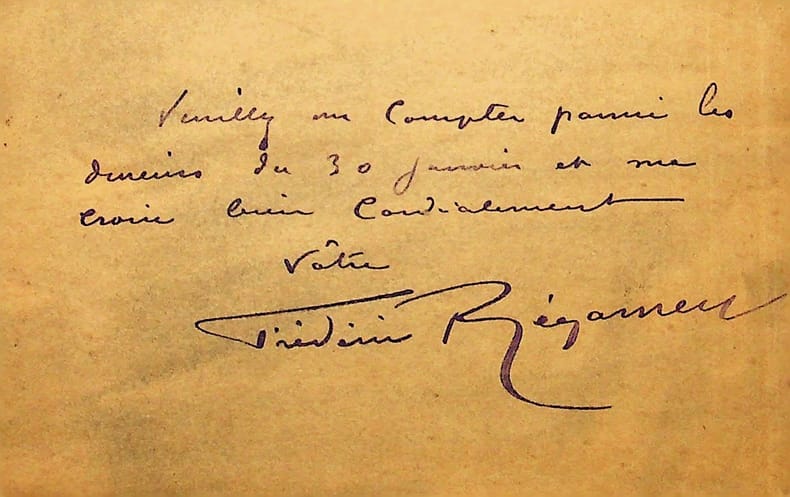 Veuillez me Compter parmi les
dineurs du 30 Janvier et me
croire bien Cordialement
Vôtre
Frédéric Régamey